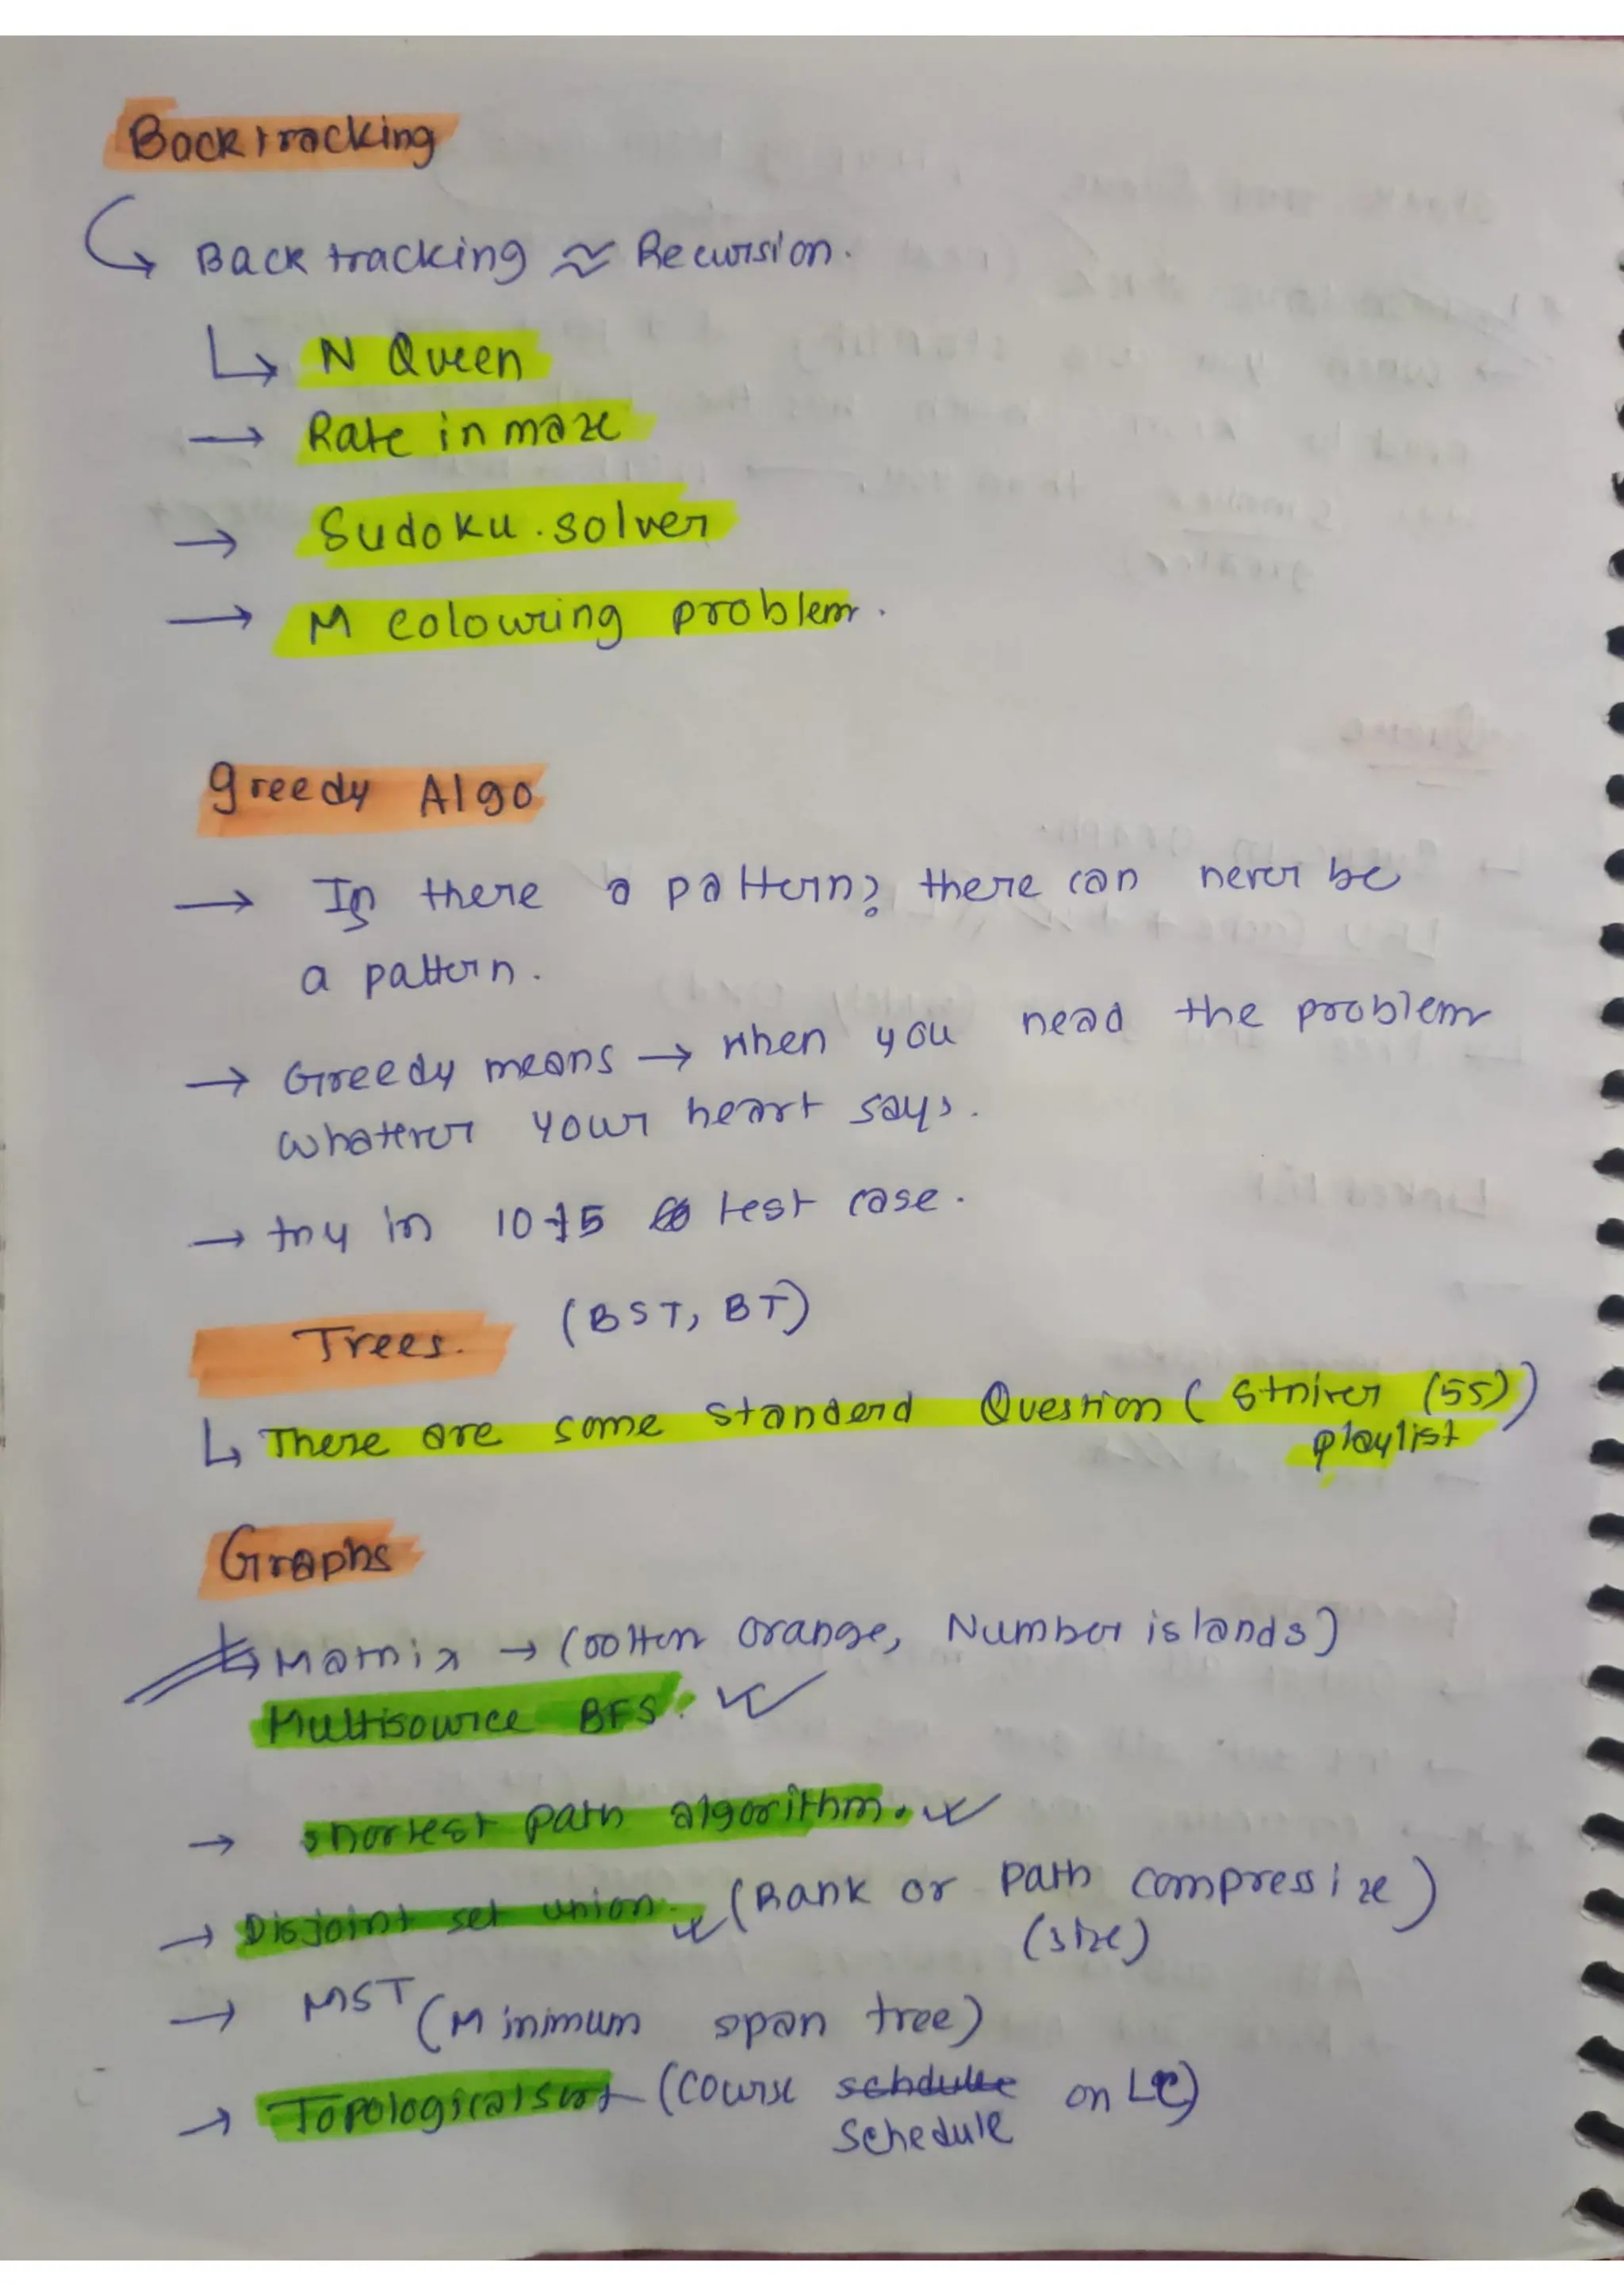 Backtracking
Back tracking ≈ Recursion.
N Queen
→ Rate in maze
→ Sudoku.solver
→ M colouring problem.
greedy Algo
→ Is there a pattern? there can never be
a pattern.
→ Greedy means → when you read the problem
whatever your heart says.
→ try in 10-15 test case.
Trees. (BST, BT)
↳ There are some standerd Question ( Striver (55))
playlist
Graphs
↳ Matrix → (rotten orange, Number islands)
Multisource BFS.
→ shortest path algorithm.
→ Disjoint set union. (Rank or Path compressize)
(size)
→ MST (Minimum span tree)
→ Topological sort (Course schdule on LC)
Schedule